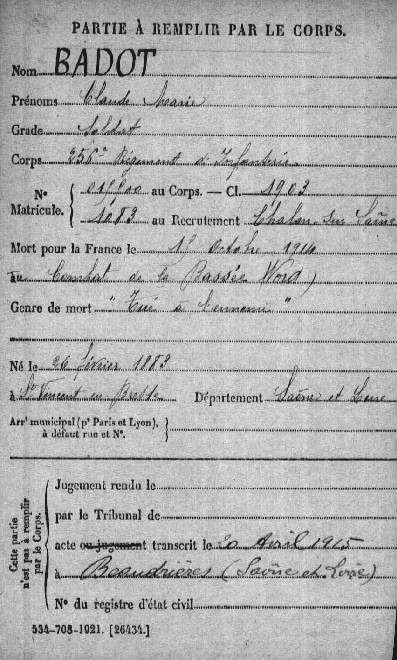 PARTIE À REMPLIR PAR LE CORPS.
Nom BADOT
Prénoms Claude Marie
Grade Soldat
Corps 256e Régiment d'Infanterie
N° Matricule. { au Corps. — Cl. 1903
1083 au Recrutement Chalon sur Saône
Mort pour la France le Octobre 1914
au Combat de la Bassée Nord)
Genre de mort "Tué à l'ennemi"
Né le 26 février 1883
à St Vincent en Bresse Département Saône et Loire
Arrt municipal (pr Paris et Lyon), à défaut rue et N°. }
Cette partie n'est pas à remplir par le Corps.
Jugement rendu le
par le Tribunal de
acte ou jugement transcrit le 20 Avril 1915
à Beaudrières (Saône et Loire)
N° du registre d'état civil
534-708-1921. [26434.]